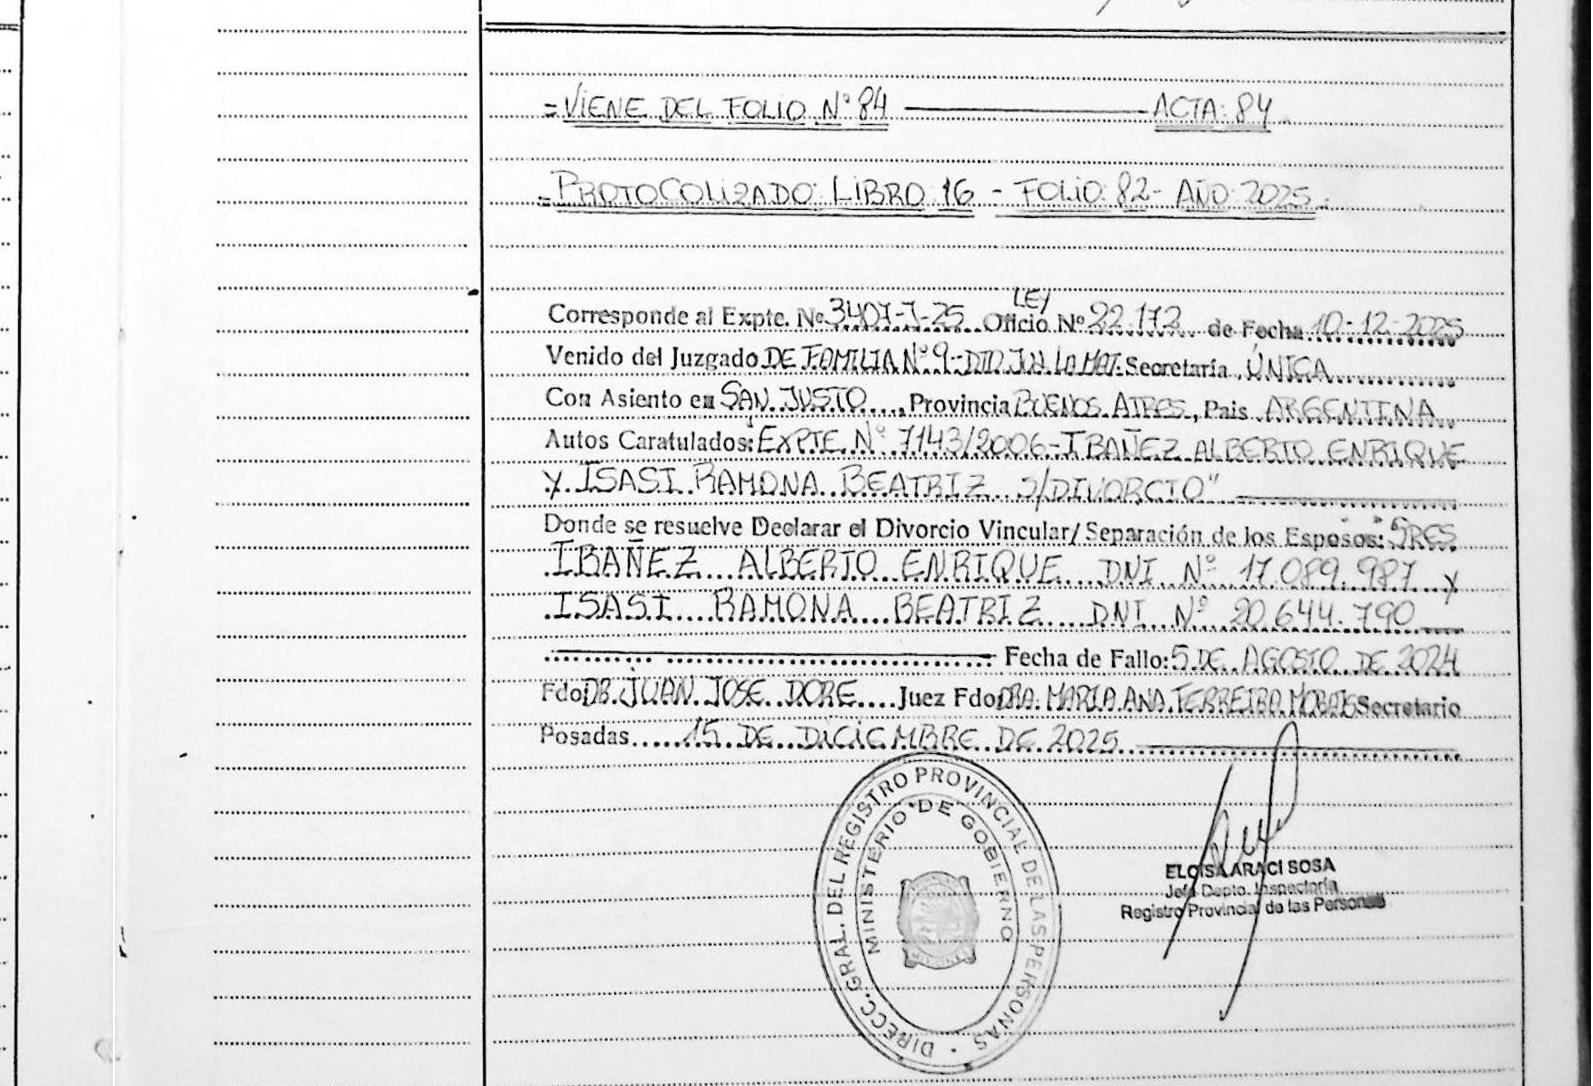 =VIENE DEL FOLIO Nº 84 ——— ACTA: 84.
=PROTOCOLIZADO: LIBRO 16 - FOLIO: 82- AÑO: 2025.
Corresponde al Expte. Nº 3407-J-25 LEY Oficio Nº 22.172 de Fecha 10-12-2025
Venido del Juzgado DE FAMILIA Nº 9- DTO JUD LA MAT. Secretaría ÚNICA
Con Asiento en SAN JUSTO, Provincia BUENOS AIRES, Pais ARGENTINA
Autos Caratulados: EXPTE. Nº 7143/2006-IBAÑEZ ALBERTO ENRIQUE
Y ISASI RAMONA BEATRIZ S/DIVORCIO"
Donde se resuelve Declarar el Divorcio Vincular/ Separación de los Esposos: SRES
IBAÑEZ ALBERTO ENRIQUE DNI Nº 17.089.987 y
ISASI RAMONA BEATRIZ DNI Nº 20.644.790
Fecha de Fallo: 5 DE AGOSTO DE 2024
Fdo DR. JUAN JOSE DORE Juez Fdo DRA. MARIA ANA FERREIRA MORAIS Secretario
Posadas 15 DE DICIEMBRE DE 2025
DIRECC. GRAL. DEL REGISTRO PROVINCIAL DE LAS PERSONAS
MINISTERIO DE GOBIERNO
MISIONES
ELOISA ARACI SOSA
Jefa Depto. Inspectoría
Registro Provincial de las Personas